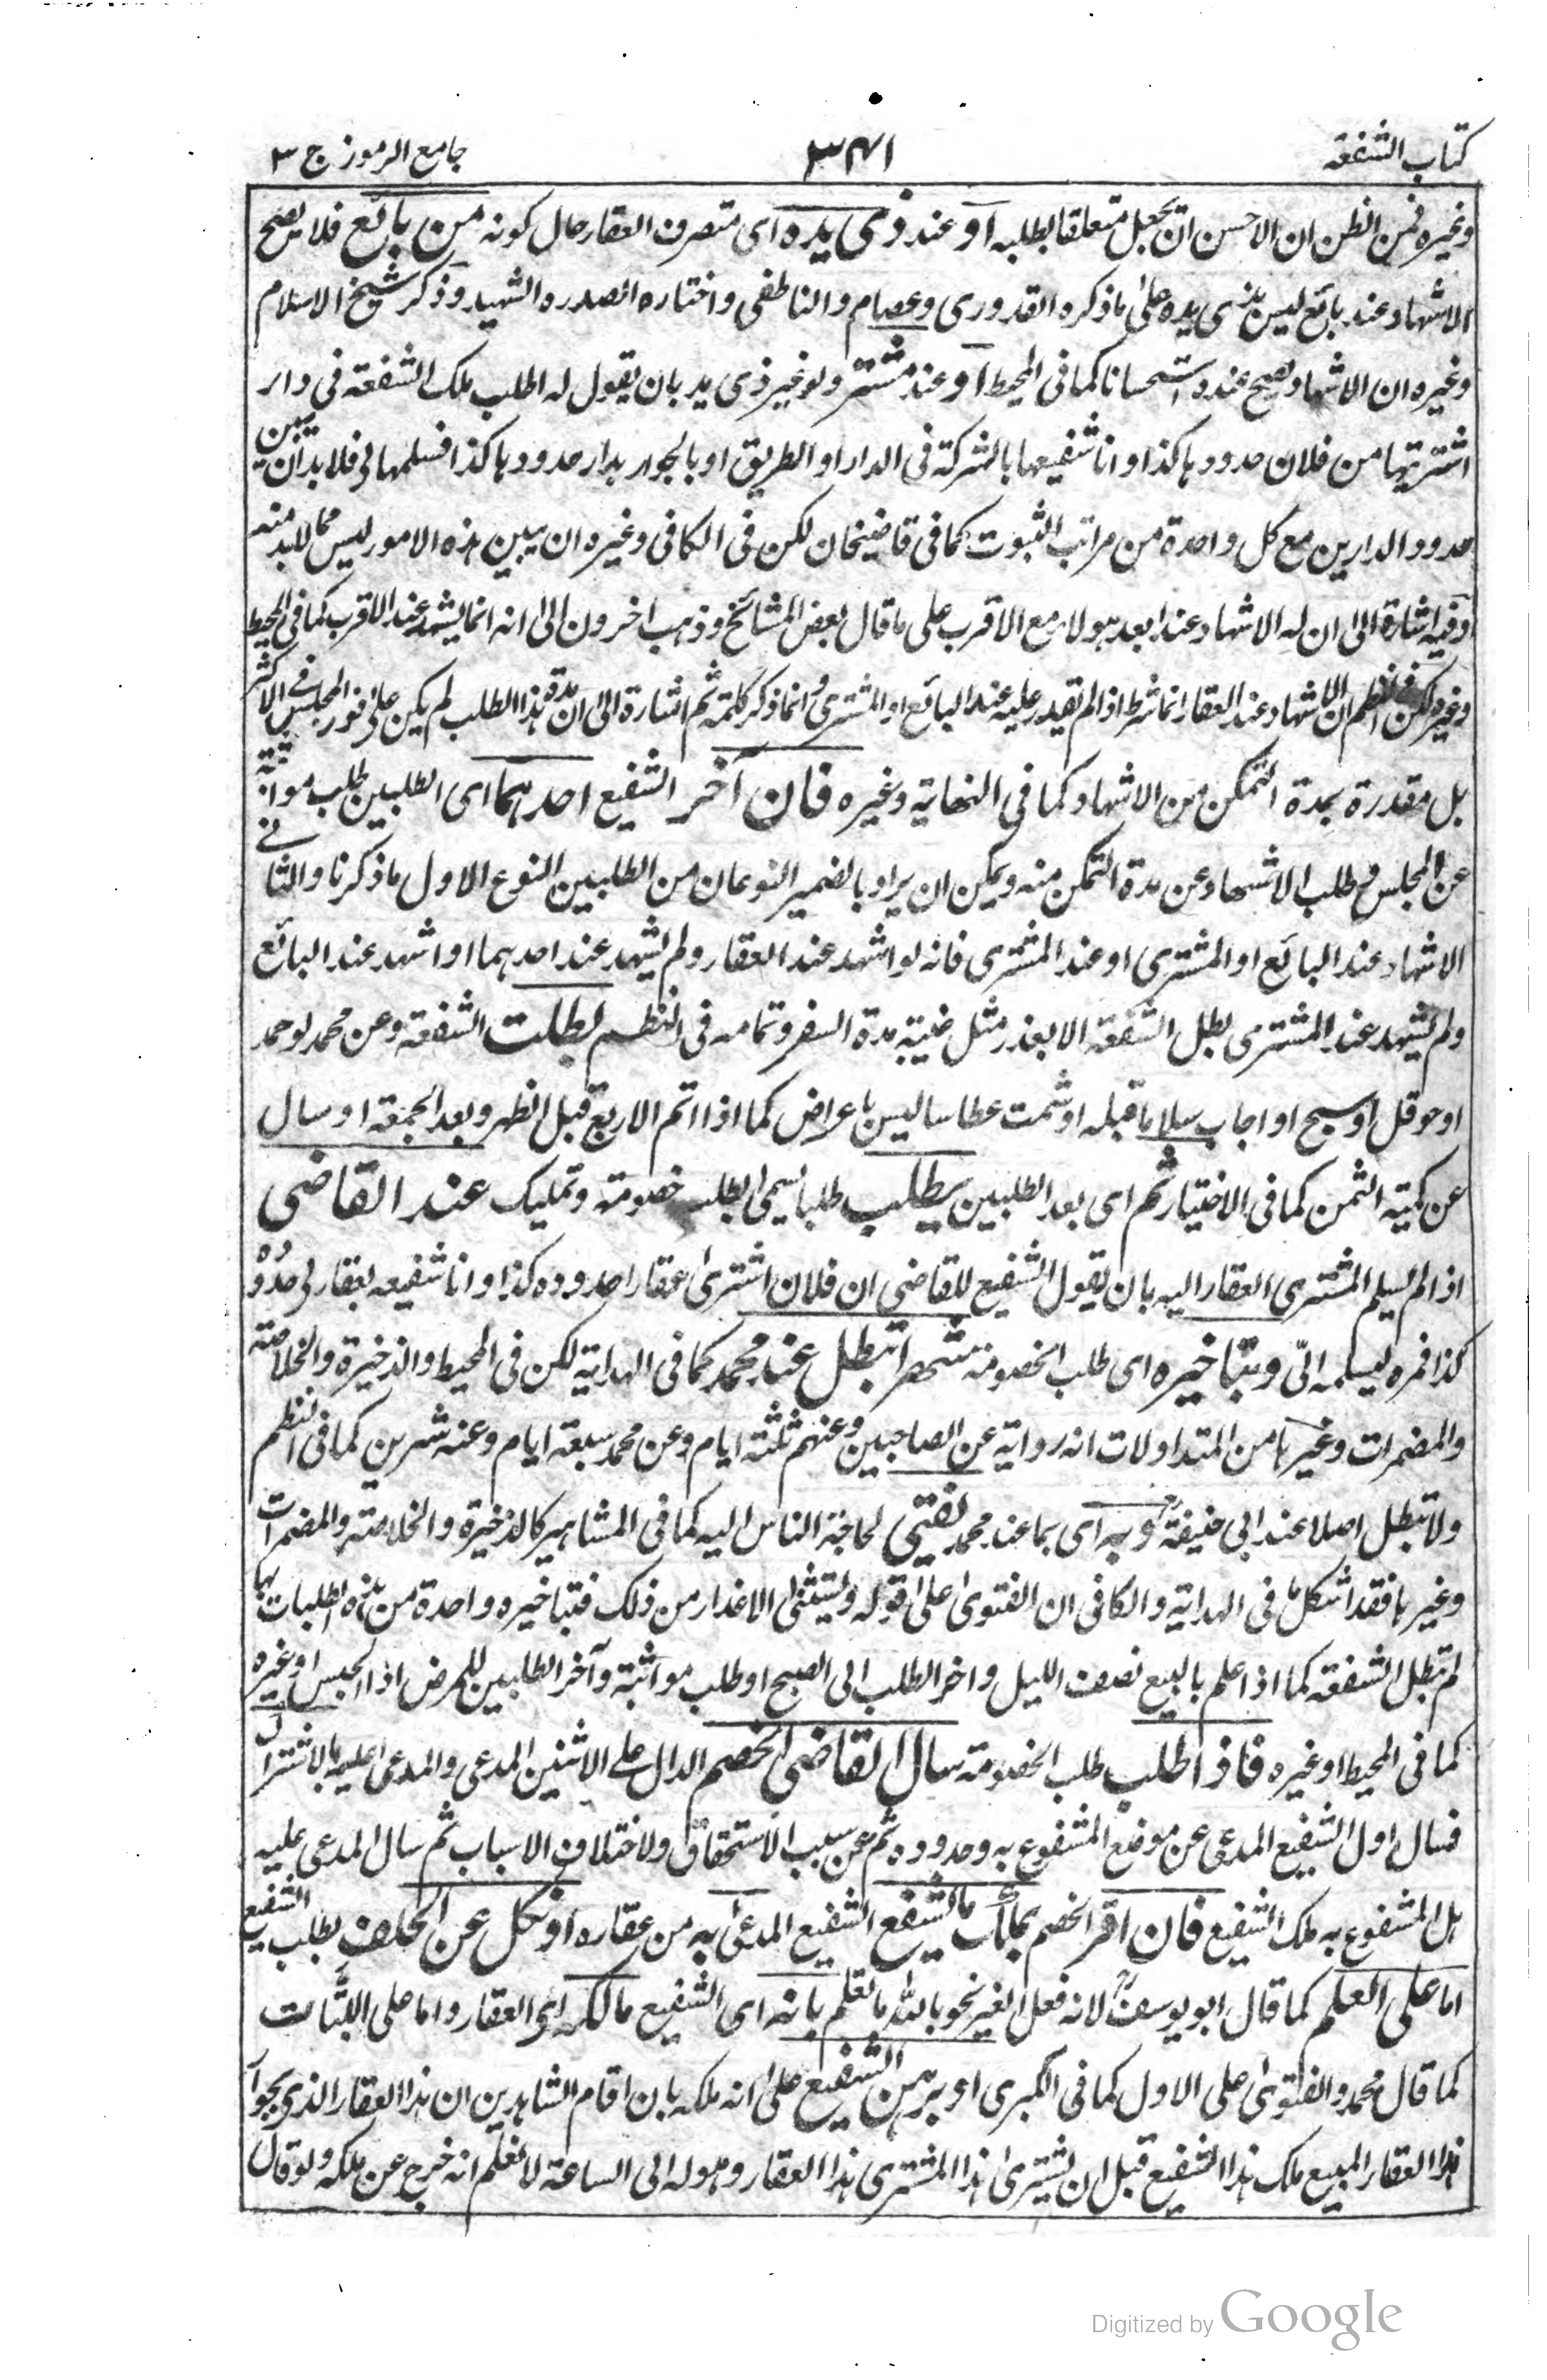 كتاب الشفعه ٣٤١ جامع الرموز ج ٣
وغيره فمن الظن ان الاحسن ان يجعل متعلقا بطلبه او عند ذى يده اى متصرف العقار حال كونه من بائع فلا يصح
الاشهاد عند بائع ليس بذى يده على ما ذكره القدورى وعصام والناطفى واختاره الصدره الشهيد وذكر شيخ الاسلام
وغيره ان الاشهاد يصح عنده استحسانا كما فى المحيط او عند مشتر ولو غير ذى يد بان يقول له اطلب ملك الشفعة فى دار
اشتريتها من فلان حدودها كذا وانا شفيعها بالشركة فى الدار او الطريق او بالجوار بدار حدودها كذا فسلمها لى فلا بد ان يبين
حدود الدارين مع كل واحدة من مراتب الثبوت كما فى قاضيخان لكن فى الكافى وغيره ان يبين هذه الامور ليس مما لابد منه
وفيه اشارة الى ان له الاشهاد عند ابعد هولاء مع الاقرب على ما قال بعض المشائخ وذهب اخرون الى انه انما يشهد عند الاقرب كما فى المحيط
وغيره لكن فى النظم ان الاشهاد عند العقار انما شرط اذا لم يقدر عليه عند البائع او المشترى وانما ذكر كلمة ثم اشارة الى ان مدة هذا الطلب لم يكن على فور المجلس فى الاكثر
بل مقدرة بمدة التمكن من الاشهاد كما فى النهاية وغيره فان آخر الشفيع احدهما اى الطلبين طلب مواثبة
عن المجلس وطلب الاشهاد عن مدة التمكن منه ويمكن ان يراد بالضمير النوعان من الطلبين النوع الاول ما ذكرنا والثانى
الاشهاد عند البائع او المشترى او عند المشترى فانه لو اشهد عند العقار ولم يشهد عند احدهما او اشهد عند البائع
ولم يشهد عند المشترى بطل الشفعة الا بعذر مثل غيبة مدة السفر وتمامه فى النظم بطلت الشفعة وعن محمد لو حمد
او حوقل او سبح او اجاب سلاما قبله او شمت عطاسا ليس باعراض كما اذا اتم الاربع قبل الظهر وبعد الجمعة او سال
عن كمية الثمن كما فى الاختيار ثم اى بعد الطلبين يطلب طلبا يسمى بطلب خصومة وتمليك عند القاضى
اذا لم يسلم المشترى العقار اليه بان يقول الشفيع للقاضى ان فلان اشترى عقارا حدوده كذا وانا شفيعه بعقار لى حدوده
كذا فمره ليسلمه الىّ وبتاخيره اى طلب الخصومة شهرا تبطل عند محمد كما فى الهداية لكن فى المحيط والذخيرة والخلاصة
والمضمرات وغيرها من المتداولات انه رواية عن الصاحبين وعنهم ثلثة ايام وعن محمد سبعة ايام وعنه شهرين كما فى النظم
ولا تبطل اصلا عند ابى حنيفة وبه اى بما عند محمد يفتى لحاجة الناس اليه كما فى المشاهير كالذخيرة والخلاصة والمضمرات
وغيرها فقد اشكل ما فى الهداية والكافى ان الفتوى على قوله ويستثنى الاعذار من ذلك فبتاخيره واحدة من هذه الطلبات بها
لم تبطل الشفعة كما اذا علم بالبيع نصف الليل واخر الطلب الى الصبح او طلب مواثبة وآخر الطلبين للمرض اذا الحبس او غيره
كما فى المحيط او غيره فاذا طلب طلب الخصومة سال القاضى الخصم الدال على الاثنين المدعى والمدعى عليه بالاشتراك
فسال اول الشفيع المدعى عن موضع المشفوع به وحدوده ثم عن سبب الاستحقاق ولاختلاف الاسباب ثم سال المدعى عليه
هل المشفوع به ملك الشفيع فان اقر الخصم بملك ما يشفع الشفيع المدعى به من عقاره او نكل عن الحلف بطلب الشفيع
اما على العلم كما قال ابو يوسف لانه فعل الغير نحو بالله ما نعلم بانه اى الشفيع مالكه اى العقار واما على البتات
كما قال محمد والفتوى على الاول كما فى الكبرى او برهن الشفيع على انه ملكه بان اقام الشاهدين ان هذا العقار الذى بجوار
هذا العقار المبيع ملك هذا الشفيع قبل ان يشترى هذا المشترى هذا العقار وهو له الى الساعة لا نعلم انه خرج عن ملكه ولو قال
Digitized by Google